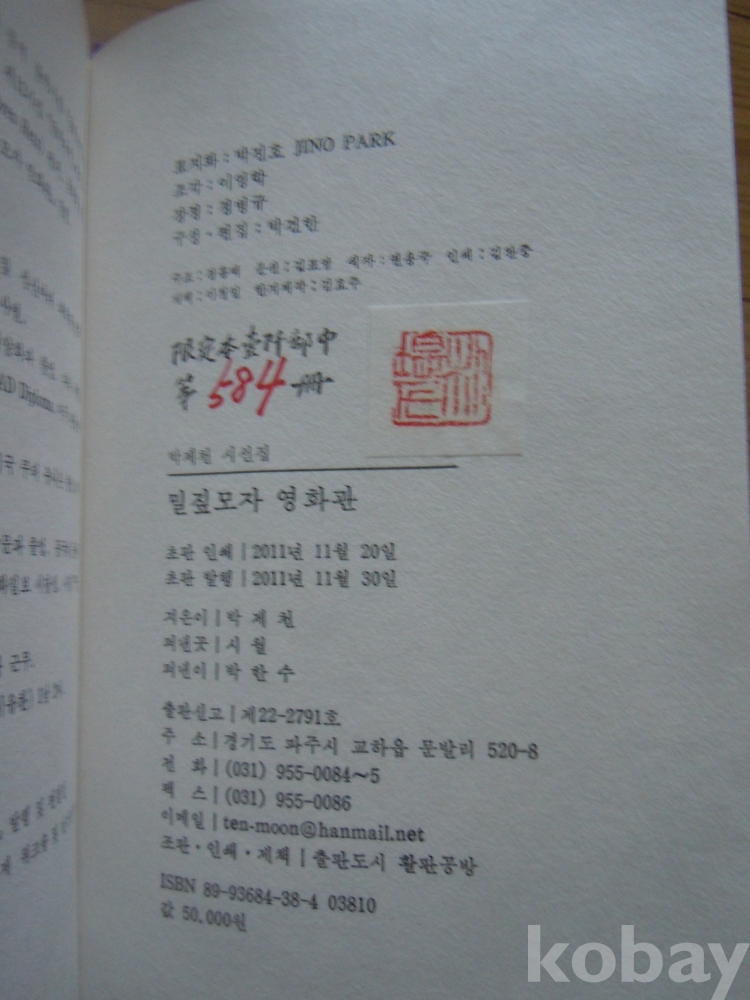 표지화 : 박진호 JINO PARK
조각 : 이영학
장정 : 정병규
구성 · 편집 : 박건한
주조 : 정흥택 문선 : 김표영 식자 : 권용국 인쇄 : 김찬중
제책 : 이정일 한지제작 : 김표주
限定本壹阡部中
第 584 冊
박제천 시선집
밀짚모자 영화관
초판 인쇄 | 2011년 11월 20일
초판 발행 | 2011년 11월 30일
지은이 | 박 제 천
펴낸곳 | 시 월
펴낸이 | 박 한 수
출판신고 | 제22-2791호
주 소 | 경기도 파주시 교하읍 문발리 520-8
전 화 | (031) 955-0084~5
팩 스 | (031) 955-0086
이메일 | ten-moon@hanmail.net
조판 · 인쇄 · 제책 | 출판도시 활판공방
ISBN 89-93684-38-4 03810
값 50,000원
kobay